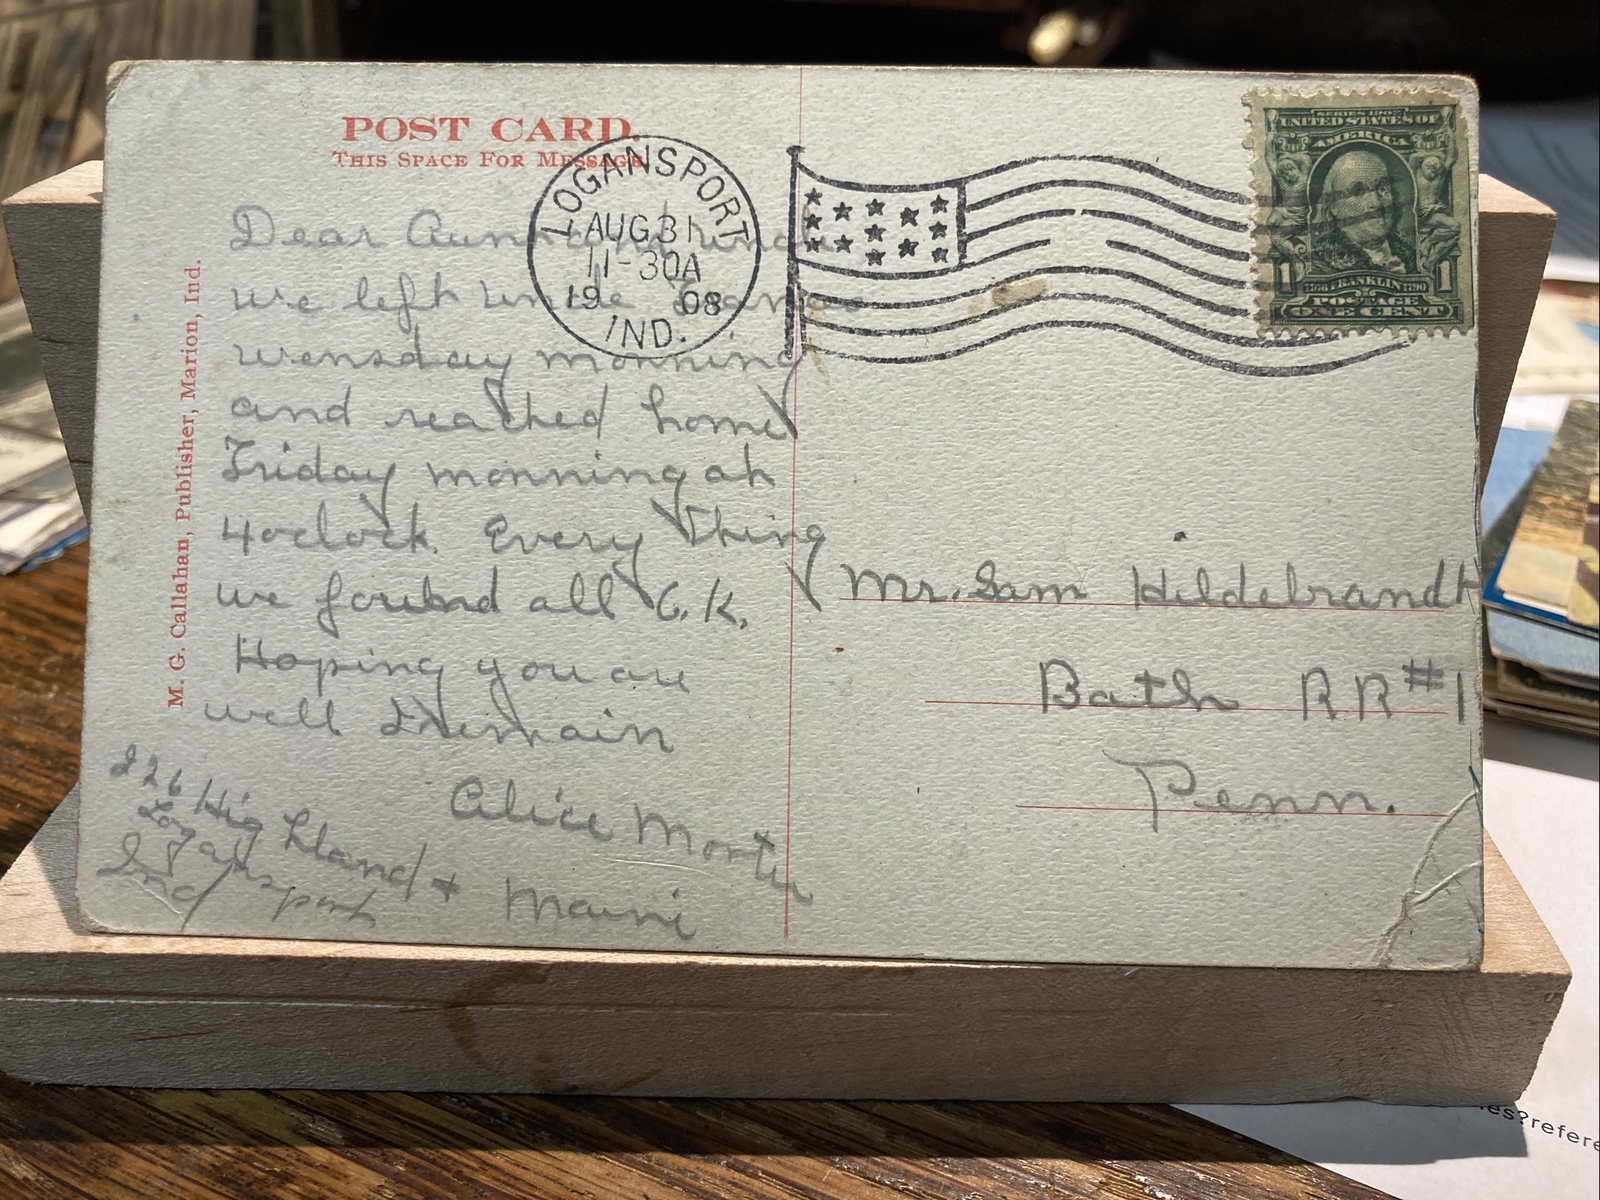 POST CARD.
THIS SPACE FOR MESSAGE
LOGANSPORT
AUG 31
11-30A
1908
IND.
SERIES 1902
UNITED STATES OF
AMERICA
1 1706 FRANKLIN 1790 1
POSTAGE
ONE CENT
M. G. Callahan, Publisher, Marion, Ind.
Dear Aunt
we left
wensday morning
and reached home
Friday morning at
4oclock. Every thing
we found all O.K.
Hoping you are
well I remain
Alice Morter
+
226 High land
Logansport
Ind
Mr. Sam Hildebrandt
Bath RR #1
Penn.
es?refere